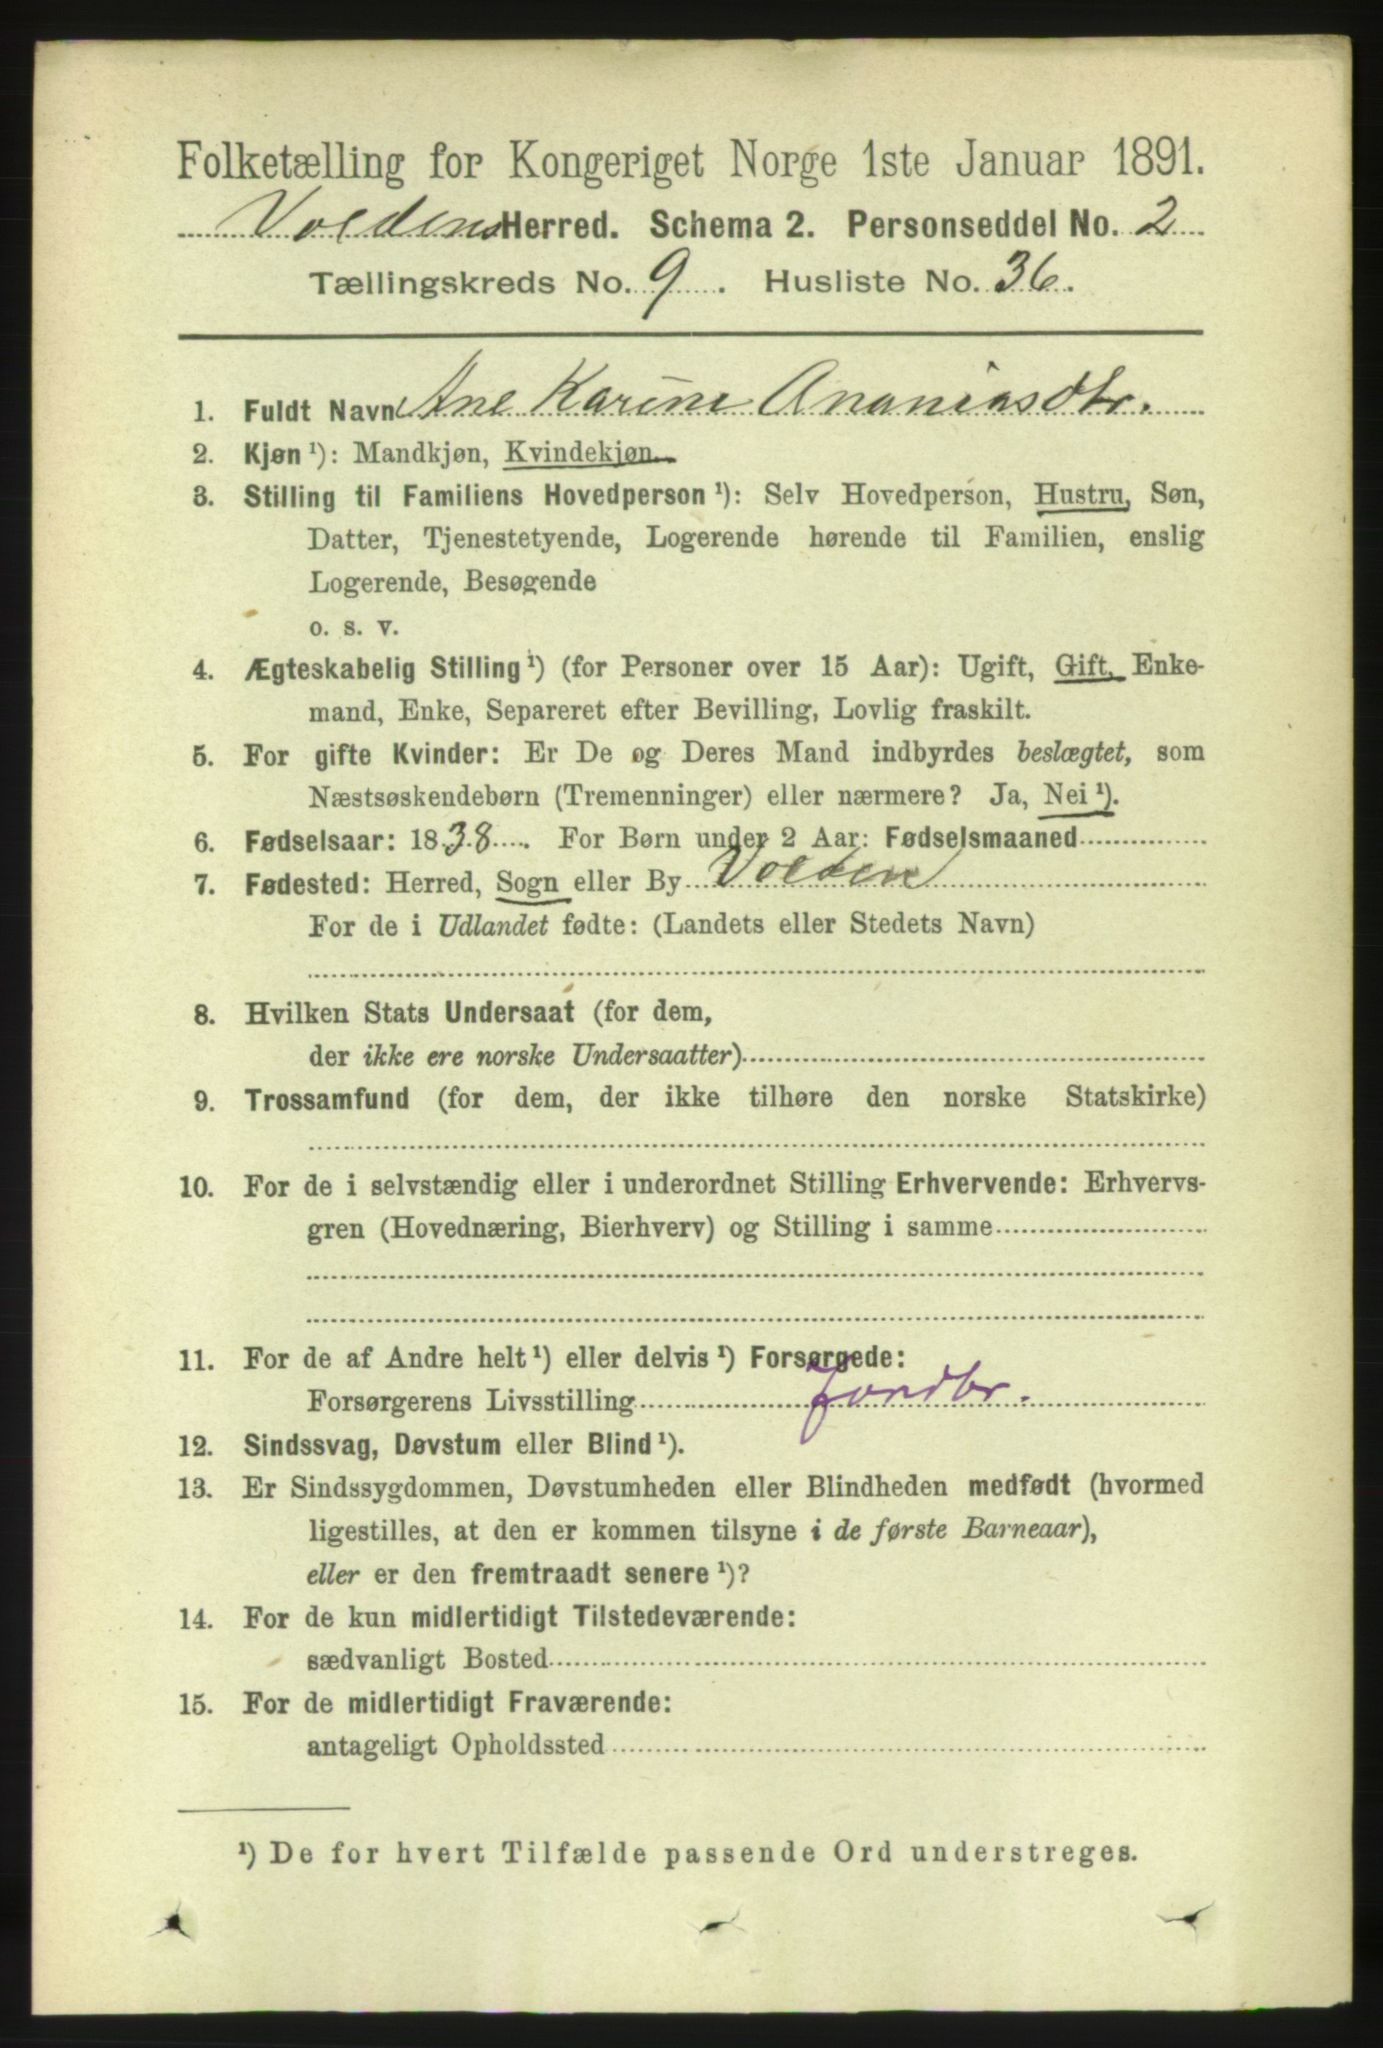 Folketælling for Kongeriget Norge 1ste Januar 1891.
Voldens Herred. Schema 2. Personseddel No. 2
Tællingskreds No. 9. Husliste No. 36.
1. Fuldt Navn Ane Karine Ananiasdtr.
2. Kjøn ¹): Mandkjøn, Kvindekjøn.
3. Stilling til Familiens Hovedperson ¹): Selv Hovedperson, Hustru, Søn,
Datter, Tjenestetyende, Logerende hørende til Familien, enslig
Logerende, Besøgende
o. s. v.
4. Ægteskabelig Stilling ¹) (for Personer over 15 Aar): Ugift, Gift, Enke-
mand, Enke, Separeret efter Bevilling, Lovlig fraskilt.
5. For gifte Kvinder: Er De og Deres Mand indbyrdes beslægtet, som
Næstsøskendebørn (Tremenninger) eller nærmere? Ja, Nei ¹).
6. Fødselsaar: 1838. For Børn under 2 Aar: Fødselsmaaned
7. Fødested: Herred, Sogn eller By Volden
For de i Udlandet fødte: (Landets eller Stedets Navn)
8. Hvilken Stats Undersaat (for dem,
der ikke ere norske Undersaatter)
9. Trossamfund (for dem, der ikke tilhøre den norske Statskirke)
10. For de i selvstændig eller i underordnet Stilling Erhvervende: Erhvervs-
gren (Hovednæring, Bierhverv) og Stilling i samme
11. For de af Andre helt ¹) eller delvis ¹) Forsørgede:
Forsørgerens Livsstilling Jordbr.
12. Sindssvag, Døvstum eller Blind ¹).
13. Er Sindssygdommen, Døvstumheden eller Blindheden medfødt (hvormed
ligestilles, at den er kommen tilsyne i de første Barneaar),
eller er den fremtraadt senere ¹)?
14. For de kun midlertidigt Tilstedeværende:
sædvanligt Bosted
15. For de midlertidigt Fraværende:
antageligt Opholdssted
¹) De for hvert Tilfælde passende Ord understreges.